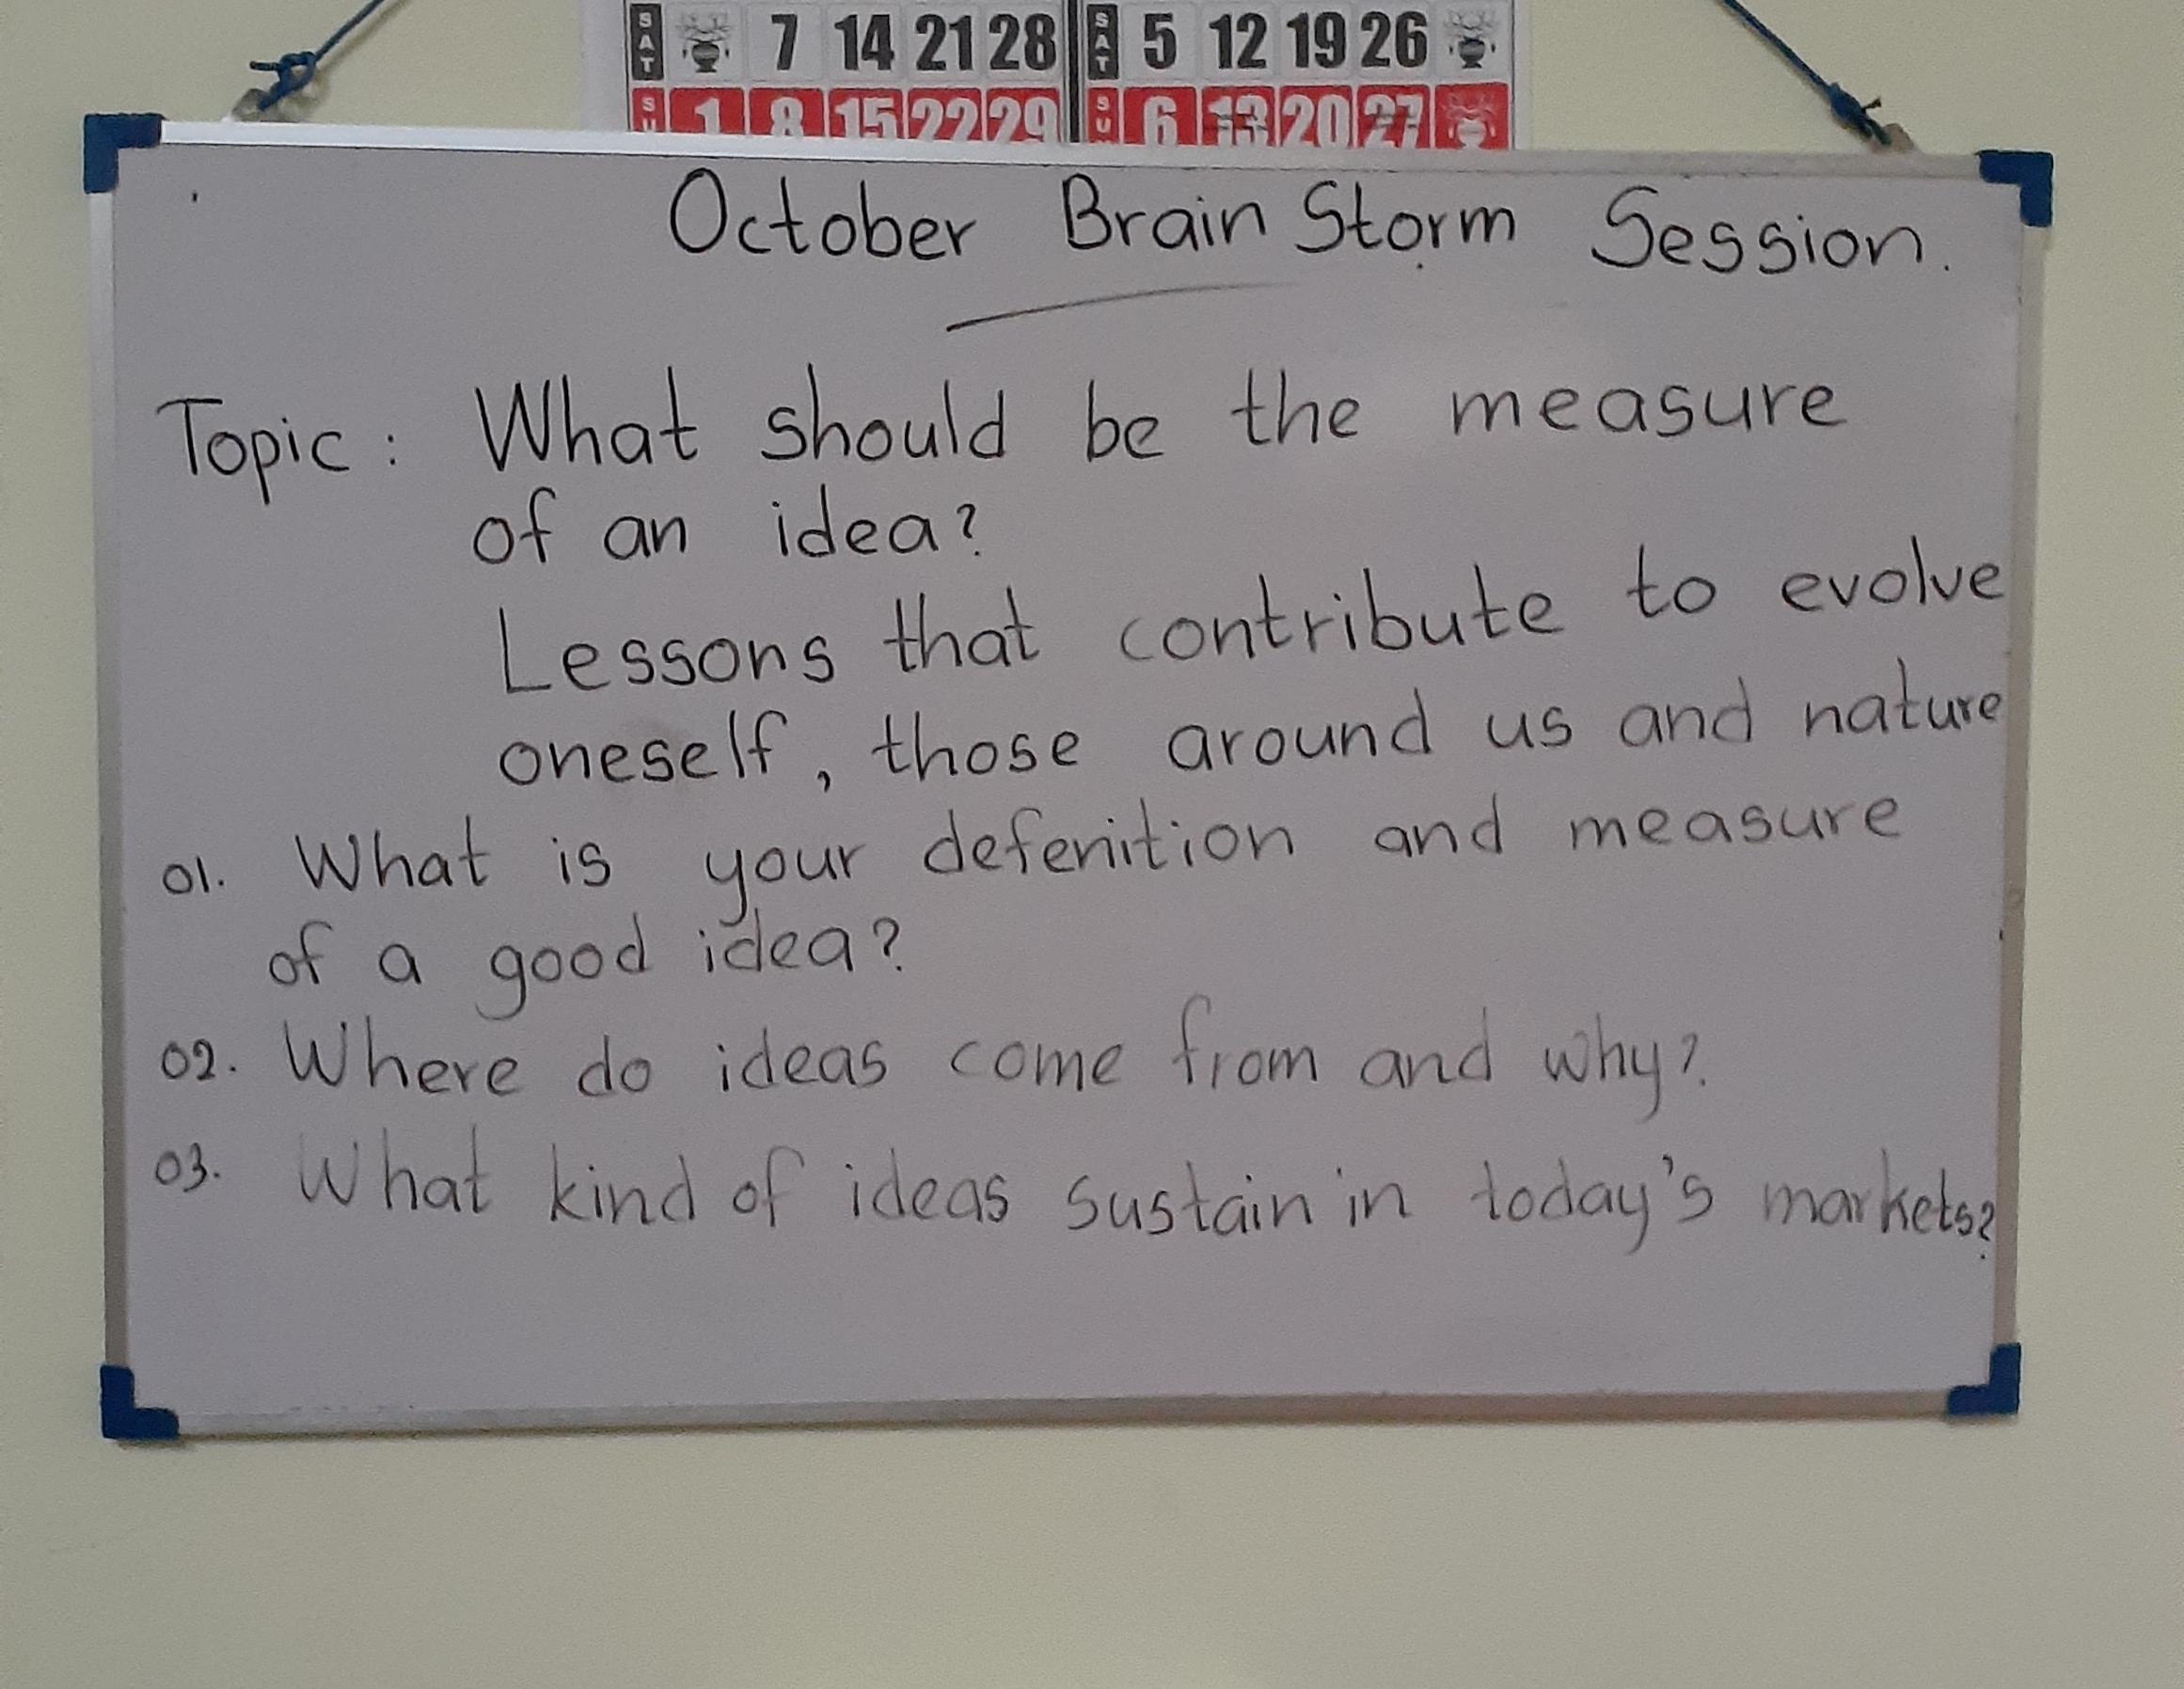 SAT 7 14 21 28 SAT 5 12 19 26
SU 1 8 15 22 29 SU 6 13 20 27
October Brain Storm Session.
Topic: What should be the measure
of an idea?
Lessons that contribute to evolve
oneself, those around us and nature
01. What is your defenition and measure
of a good idea?
02. Where do ideas come from and why?
03. What kind of ideas sustain in today's markets?